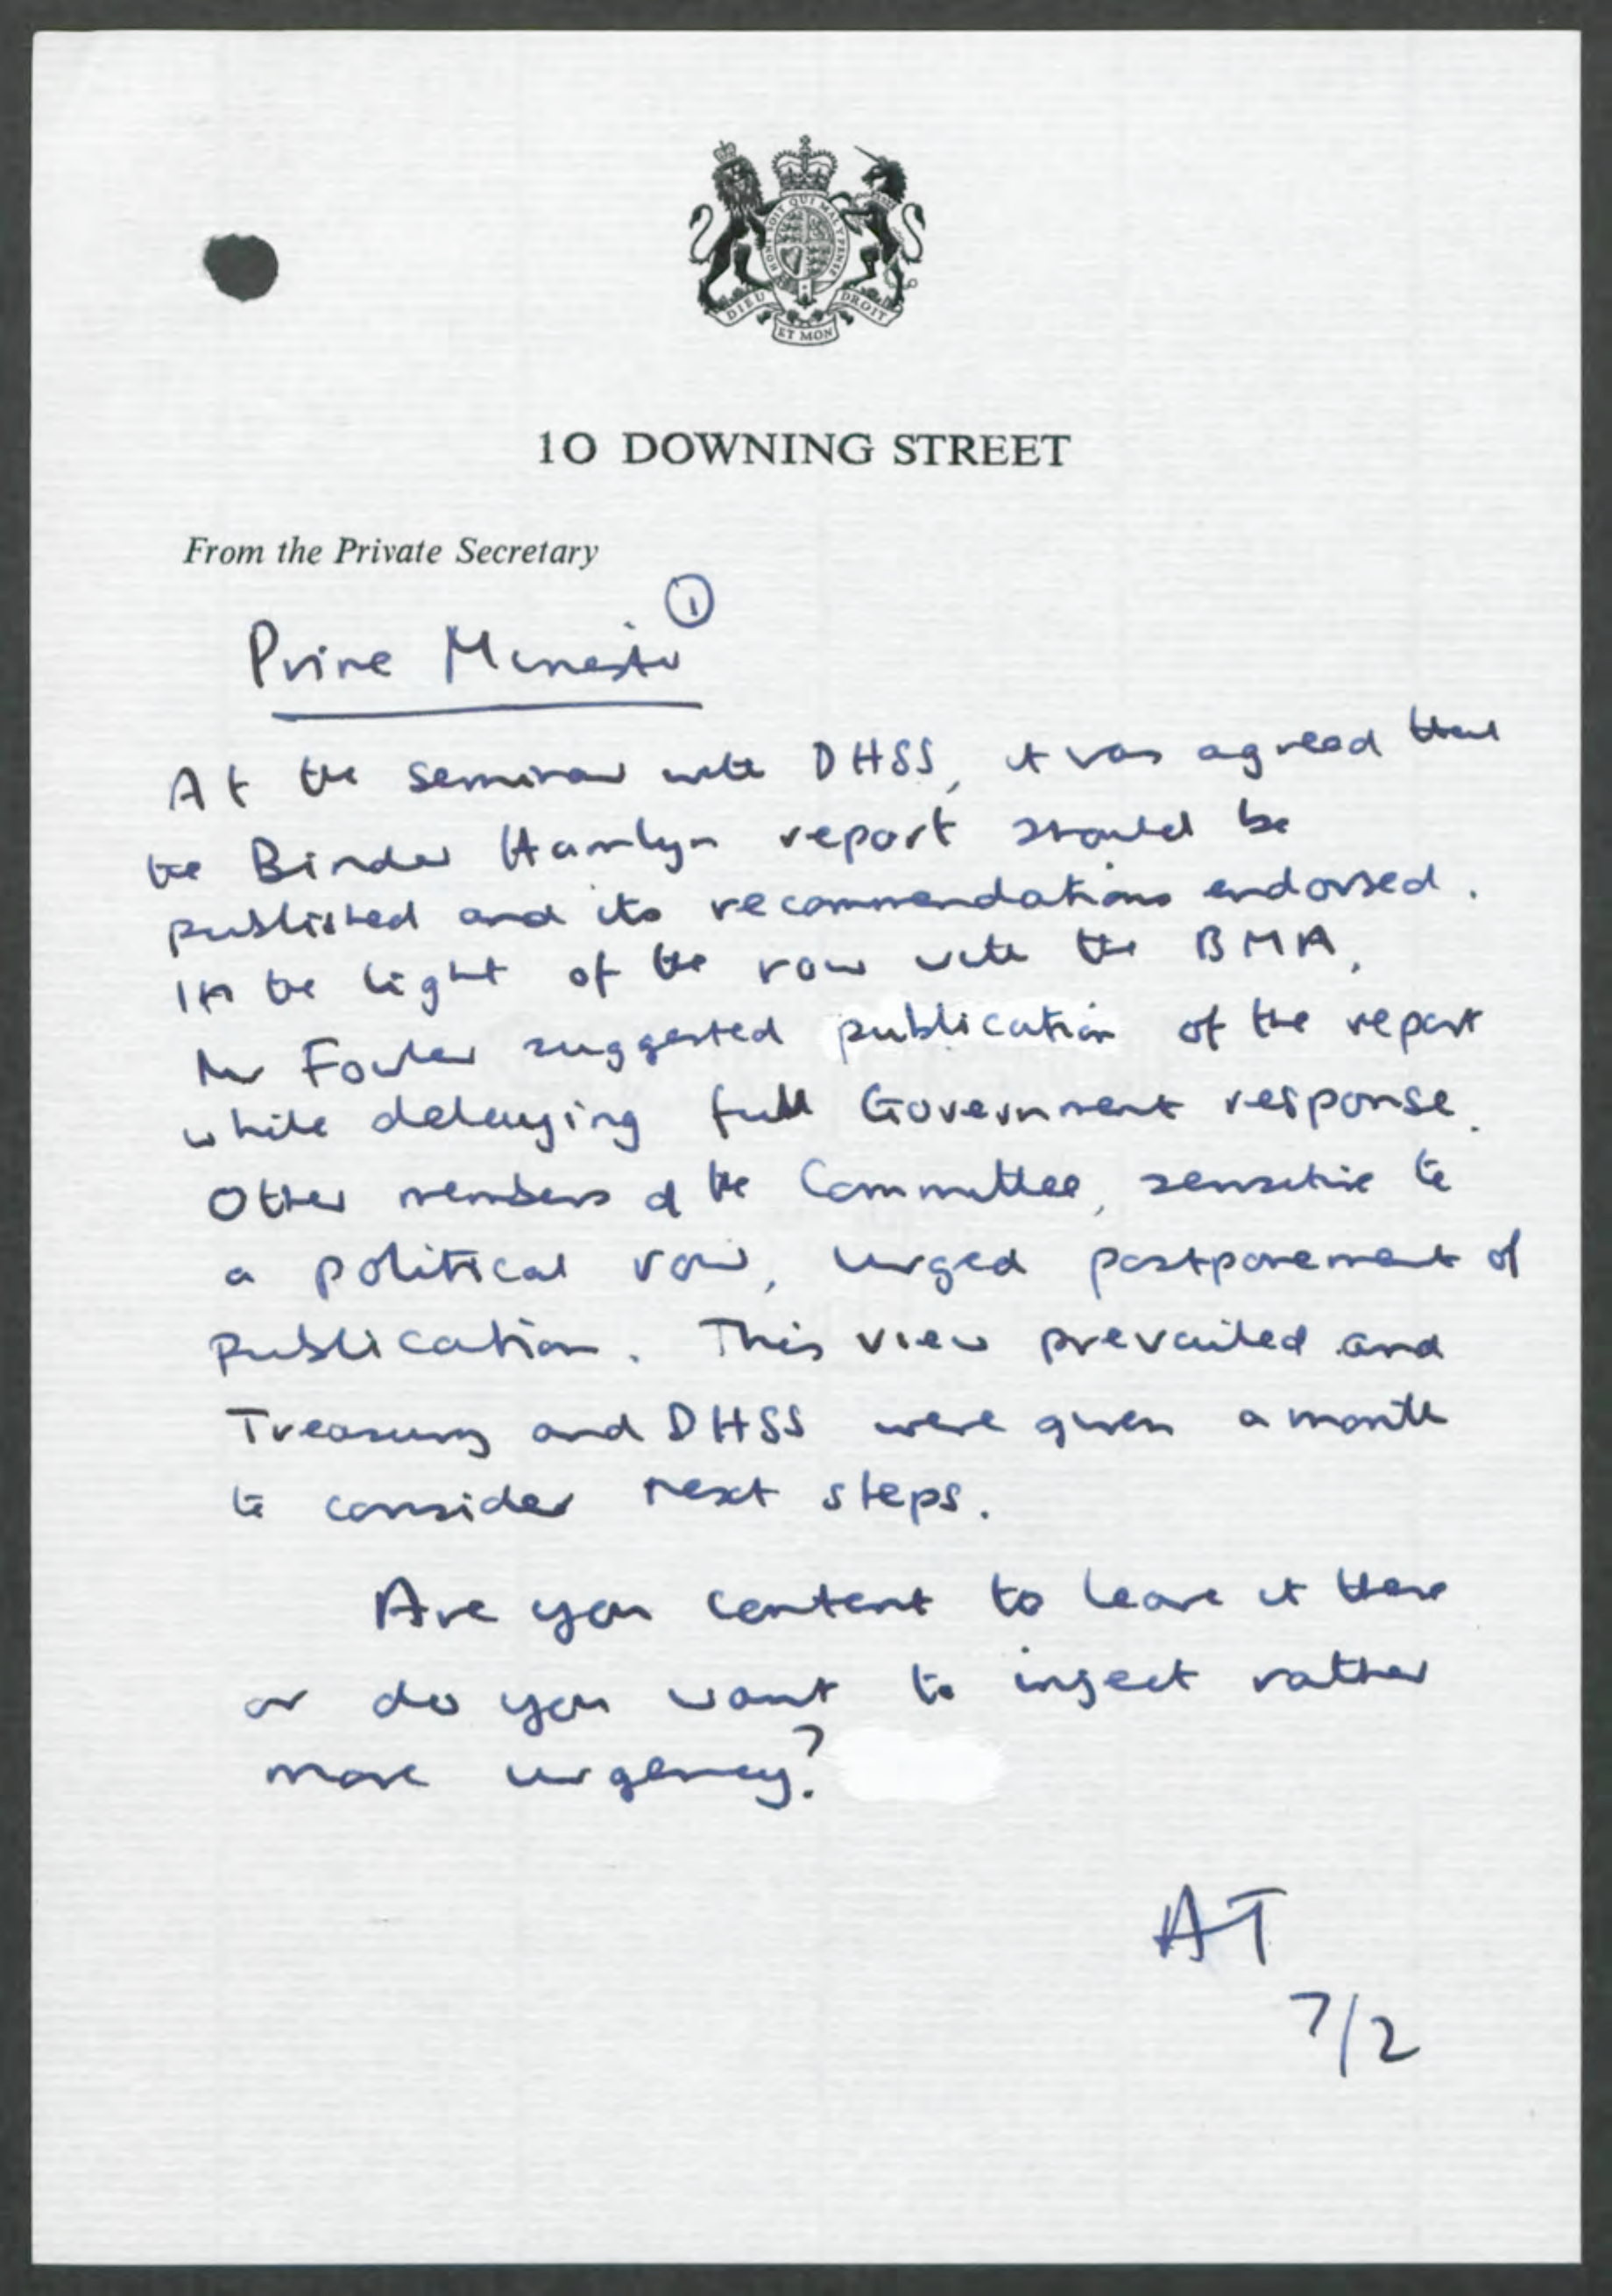 HONI SOIT QUI MAL Y PENSE
DIEU ET MON DROIT
10 DOWNING STREET
From the Private Secretary
1
Prime Minister
At the seminar with DHSS, it was agreed that
the Binder Hamlyn report should be
published and its recommendations endorsed.
In the light of the row with the BMA,
Mr Fowler suggested publication of the report
while delaying full Government response.
Other members of the Committee, sensitive to
a political row, urged postponement of
publication. This view prevailed and
Treasury and DHSS were given a month
to consider next steps.
Are you content to leave it there
or do you want to inject rather
more urgency?
AT
7/2